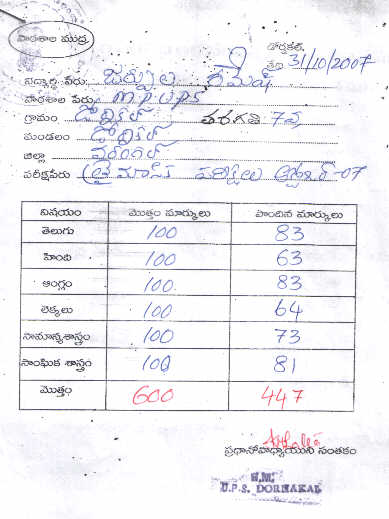 పాఠశాల ముద్ర
డోర్నకల్,
తేది 31/10/2007
విద్యార్థి పేరు జర్పుల రమేష్
పాఠశాల పేరు M.P.U.P.S
గ్రామం డోర్నకల్ తరగతి 7వ
మండలం డోర్నకల్
జిల్లా వరంగల్
పరీక్షపేరు త్రైమాసిక పరీక్షలు అక్టోబర్-07
విషయం మొత్తం మార్కులు పొందిన మార్కులు
తెలుగు 100 83
హింది 100 63
ఆంగ్లం 100. 83
లెక్కలు 100 64
సామాన్యశాస్త్రం 100 73
సాంఘిక శాస్త్రం 100 81
మొత్తం 600 447
ప్రధానోపాధ్యాయుని సంతకం
H.M.
U.P.S. DORNAKAL